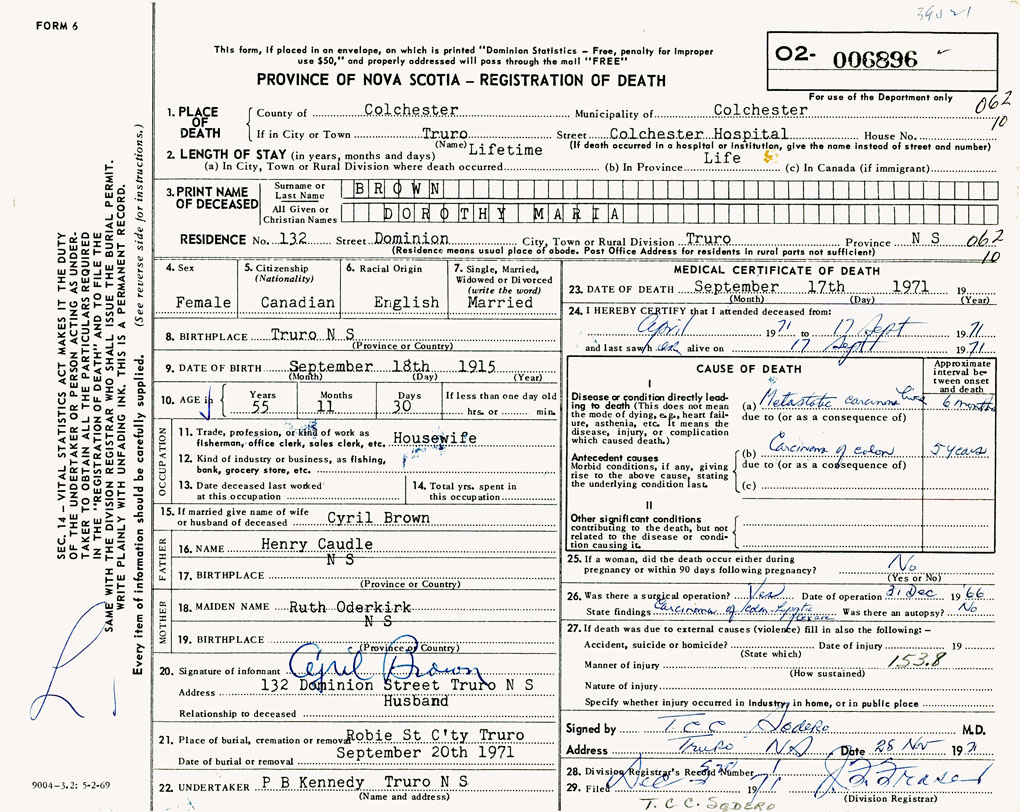 39821
FORM 6
This form, if placed in an envelope, on which is printed "Dominion Statistics – Free, penalty for improper
use $50," and properly addressed will pass through the mail "FREE"
PROVINCE OF NOVA SCOTIA – REGISTRATION OF DEATH
O2- 006896
For use of the Department only
062
10
1. PLACE OF DEATH
County of Colchester Municipality of Colchester
If in City or Town Truro Street Colchester Hospital House No.
(Name) (If death occurred in a hospital or institution, give the name instead of street and number)
2. LENGTH OF STAY (in years, months and days) Lifetime Life
(a) In City, Town or Rural Division where death occurred (b) In Province (c) In Canada (if immigrant)
3. PRINT NAME OF DECEASED
Surname or Last Name BROWN
All Given or Christian Names DOROTHY MARIA
RESIDENCE No. 132 Street Dominion City, Town or Rural Division Truro Province N S 062
10
(Residence means usual place of abode. Post Office Address for residents in rural parts not sufficient)
4. Sex
Female
5. Citizenship
(Nationality)
Canadian
6. Racial Origin
English
7. Single, Married,
Widowed or Divorced
(write the word)
Married
8. BIRTHPLACE Truro N S
(Province or Country)
9. DATE OF BIRTH September 18th 1915
(Month) (Day) (Year)
10. AGE in Years Months Days If less than one day old
55 11 30 hrs. or min.
OCCUPATION
11. Trade, profession, or kind of work as
fisherman, office clerk, sales clerk, etc. Housewife
12. Kind of industry or business, as fishing,
bank, grocery store, etc.
13. Date deceased last worked
at this occupation
14. Total yrs. spent in
this occupation
15. If married give name of wife
or husband of deceased Cyril Brown
FATHER
16. NAME Henry Caudle
N S
17. BIRTHPLACE
(Province or Country)
MOTHER
18. MAIDEN NAME Ruth Oderkirk
N S
19. BIRTHPLACE
(Province or Country)
20. Signature of informant Cyril Brown
Address 132 Dominion Street Truro N S
Husband
Relationship to deceased
21. Place of burial, cremation or removal Robie St C'ty Truro
September 20th 1971
Date of burial or removal
22. UNDERTAKER P B Kennedy Truro N S
(Name and address)
MEDICAL CERTIFICATE OF DEATH
23. DATE OF DEATH September 17th 1971 19
(Month) (Day) (Year)
24. I HEREBY CERTIFY that I attended deceased from:
April 1971 to 17 Sept 1971
and last saw her alive on 17 Sept 1971
CAUSE OF DEATH
Approximate
interval be-
tween onset
and death
I
Disease or condition directly lead-
ing to death (This does not mean
the mode of dying, e.g., heart fail-
ure, asthenia, etc. It means the
disease, injury, or complication
which caused death.)
(a) Metastatic carcinoma liver 6 months
due to (or as a consequence of)
Antecedent causes
Morbid conditions, if any, giving
rise to the above cause, stating
the underlying condition last.
(b) Carcinoma of colon 5 years
due to (or as a consequence of)
(c)
II
Other significant conditions
contributing to the death, but not
related to the disease or condi-
tion causing it.
25. If a woman, did the death occur either during
pregnancy or within 90 days following pregnancy? No
(Yes or No)
26. Was there a surgical operation? Yes Date of operation 31 Dec 1966
State findings Carcinoma of colon Was there an autopsy? No
27. If death was due to external causes (violence) fill in also the following: –
Accident, suicide or homicide? Date of injury 19
(State which)
Manner of injury 153.8
(How sustained)
Nature of injury
Specify whether injury occurred in Industry, in home, or in public place
Signed by T.C.C. Sodero M.D.
Address Truro NS Date 28 Nov 1971
28. Division Registrar's Record Number
29. Filed Dec 1971
(Division Registrar)
T. C. C. SODERO
SEC. 14 – VITAL STATISTICS ACT MAKES IT THE DUTY
OF THE UNDERTAKER OR PERSON ACTING AS UNDER-
TAKER TO OBTAIN ALL THE PARTICULARS REQUIRED
IN THE "REGISTRATION OF DEATH" AND TO FILE THE
SAME WITH THE DIVISION REGISTRAR WHO SHALL ISSUE THE BURIAL PERMIT.
WRITE PLAINLY WITH UNFADING INK. THIS IS A PERMANENT RECORD.
Every item of information should be carefully supplied. (See reverse side for instructions.)
9004-3.2: 5-2-69